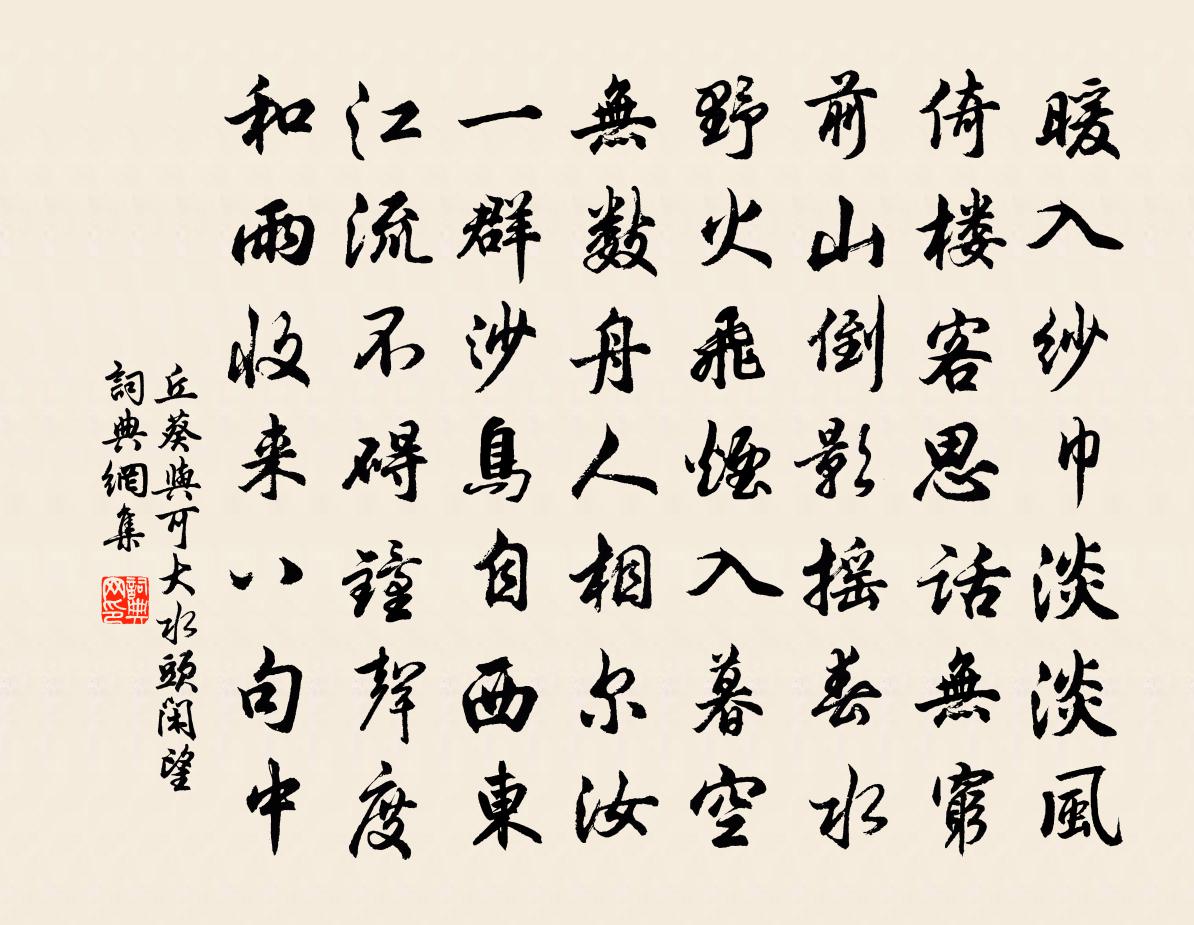 暖入纱巾淡淡風
倚楼客思話無窮
前山倒影摇春水
野火飛煙入暮空
無數舟人相尔汝
一群沙鳥自西東
江流不碍鐘聲度
和雨收来八句中
丘葵與可大水頭閑望
詞典網集
詞典网印